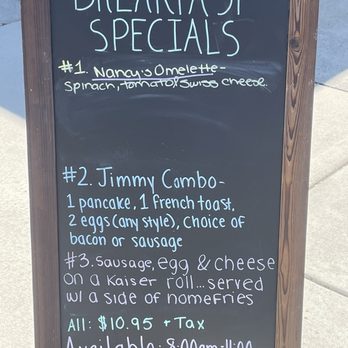 BREAKFAST
SPECIALS
#1. Nancy's Omelette-
Spinach, tomato, Swiss cheese.
#2. Jimmy Combo-
1 pancake, 1 french toast,
2 eggs (any style), choice of
bacon or sausage
#3. Sausage, egg & cheese
on a Kaiser roll... served
w/ a side of homefries
All: $10.95 + Tax
Available: 8:00am-11:00